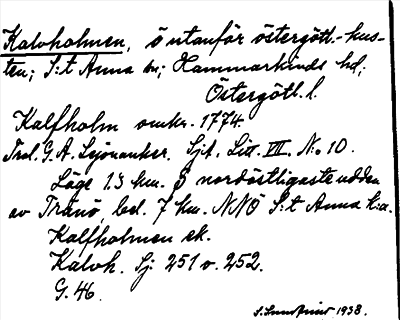 Kalvholmen, ö utanför östergötl.-kus-
ten; S:t Anna sn; Hammarkinds hd;
Östergötl. l.
Kalfholm omkr. 1774
Trol. G. A. Lejonanker. Sjk. Litt. VII. No 10.
Läge 1.3 km. Ö nordöstligaste udden
av Tränö, bel. 7 km. NNO S:t Anna k:a.
Kalfholmen ek.
Kalvh. Sj. 251 o. 252.
G. 46.
1938.